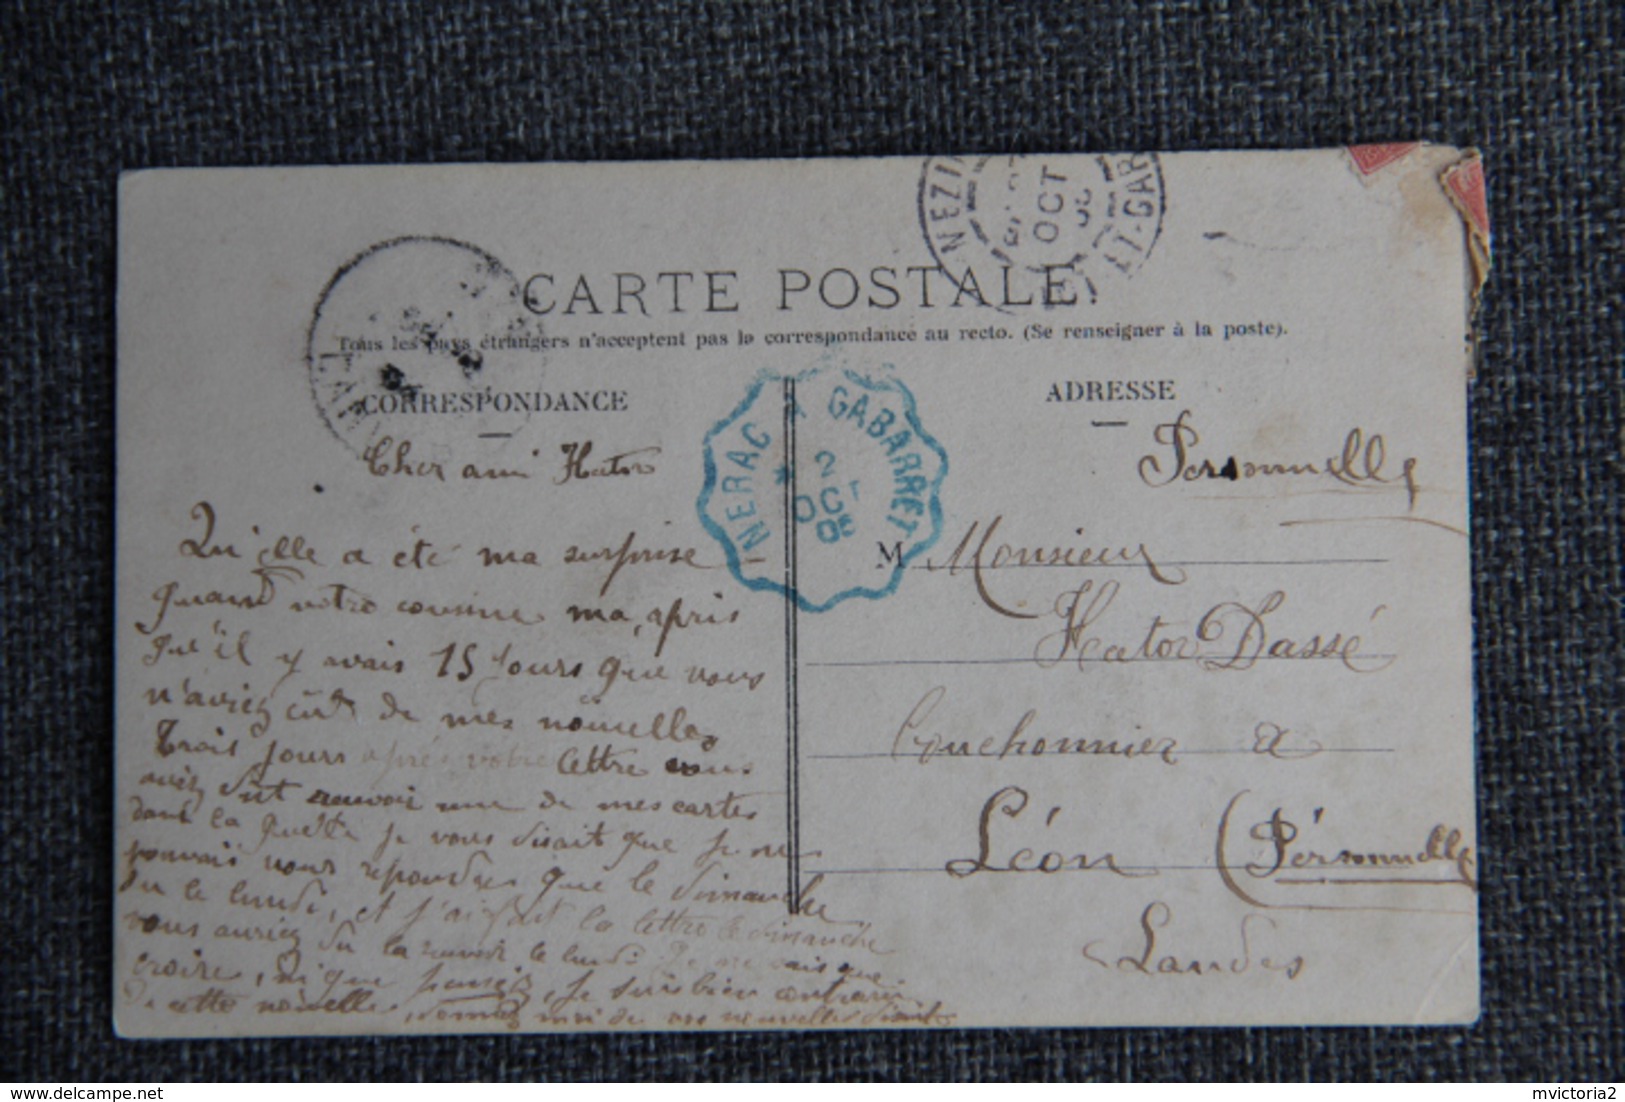 CARTE POSTALE.
Tous les pays étrangers n'acceptent pas la correspondance au recto. (Se renseigner à la poste).
CORRESPONDANCE
Cher ami Hator
Qu'elle a été ma surprise
quand votre cousine ma, apris
qu'il y avais 15 jours que vous
n'aviez eut de mes nouvelles
Trois jours après votre lettre vous
aviez dut reuvoir une de mes cartes
dans la quelle je vous disait que je ne
pouvais vous repondres que le dimanche
ou le lundi, et j'ai fait la lettre le dimanche
vous auriez du la reuvoir le lundi je ne sais que
croire, ni que pensez, je suis bien contrarié
de cette nouvelle, donnez moi de vos nouvelles
NERAC A GABARRET
2
OCT
05
ADRESSE
Personnelle
M Monsieur
Hator Dassé
Bouchonnier a
Léon (Personnelle
Landes
NEZIN
OCT
LT-GAR
mvictoria2